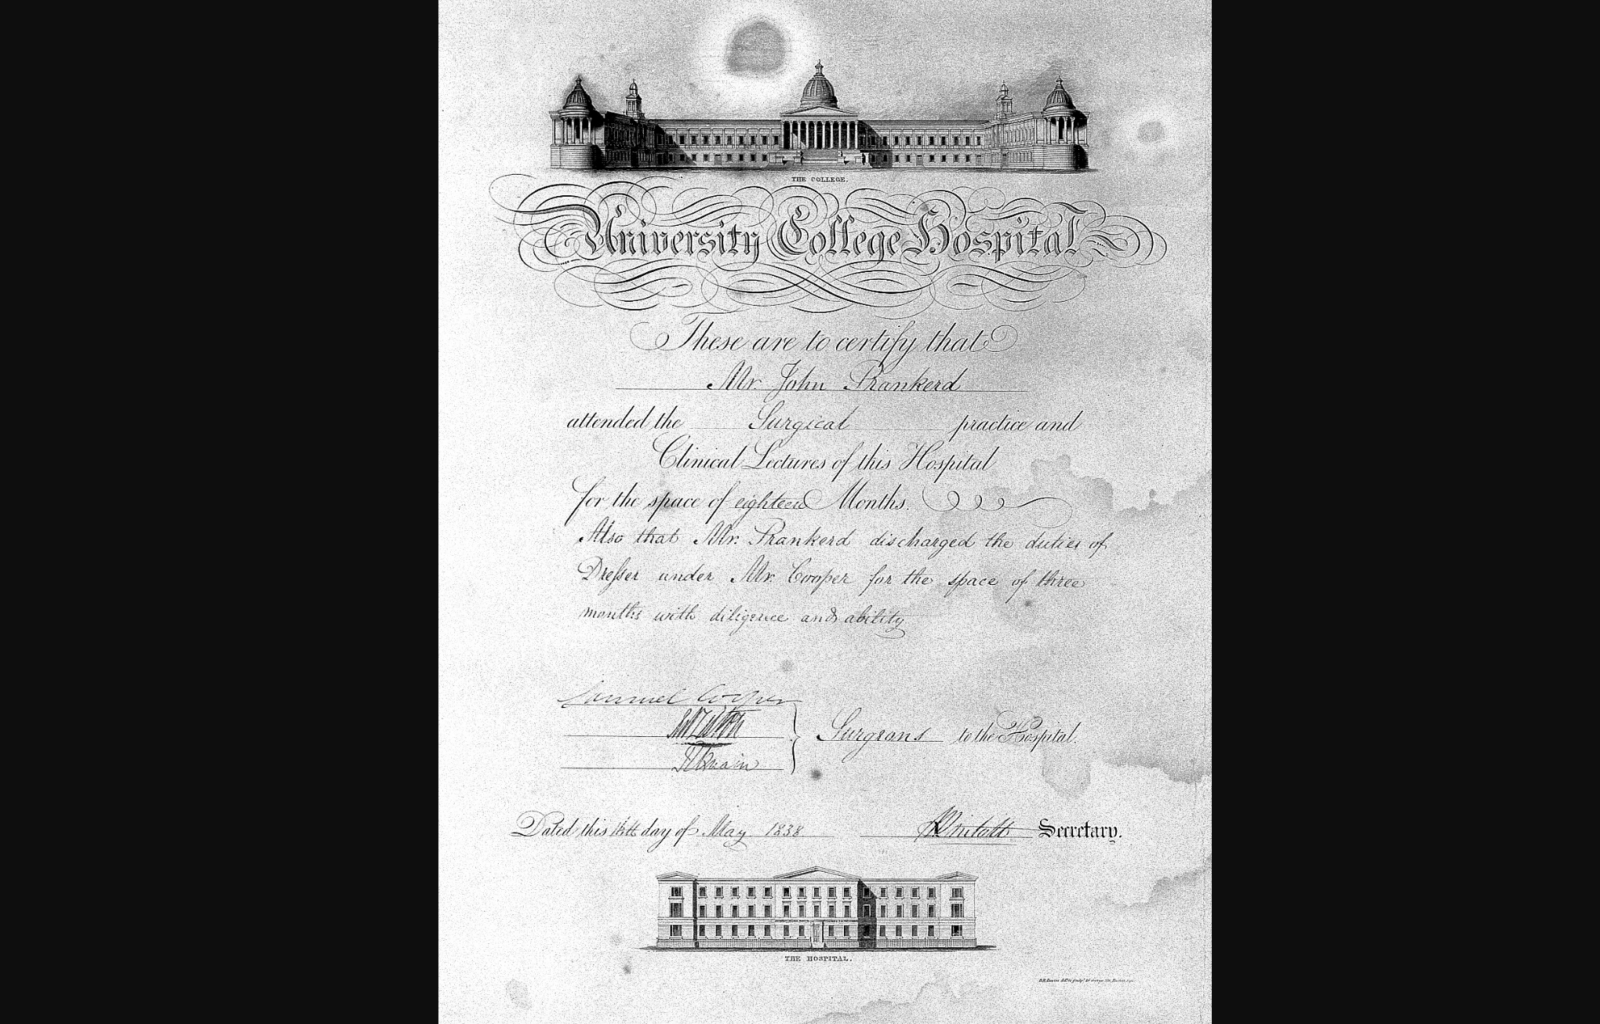 THE COLLEGE.
University College Hospital
These are to certify that
Mr. John Prankerd
attended the Surgical practice and
Clinical Lectures of this Hospital
for the space of eighteen Months.
Also that Mr. Prankerd discharged the duties of
Dresser under Mr. Cooper for the space of three
months with diligence and ability
Samuel Cooper
Surgeons to the Hospital.
Dated this day of May 1838 Secretary.
THE HOSPITAL.